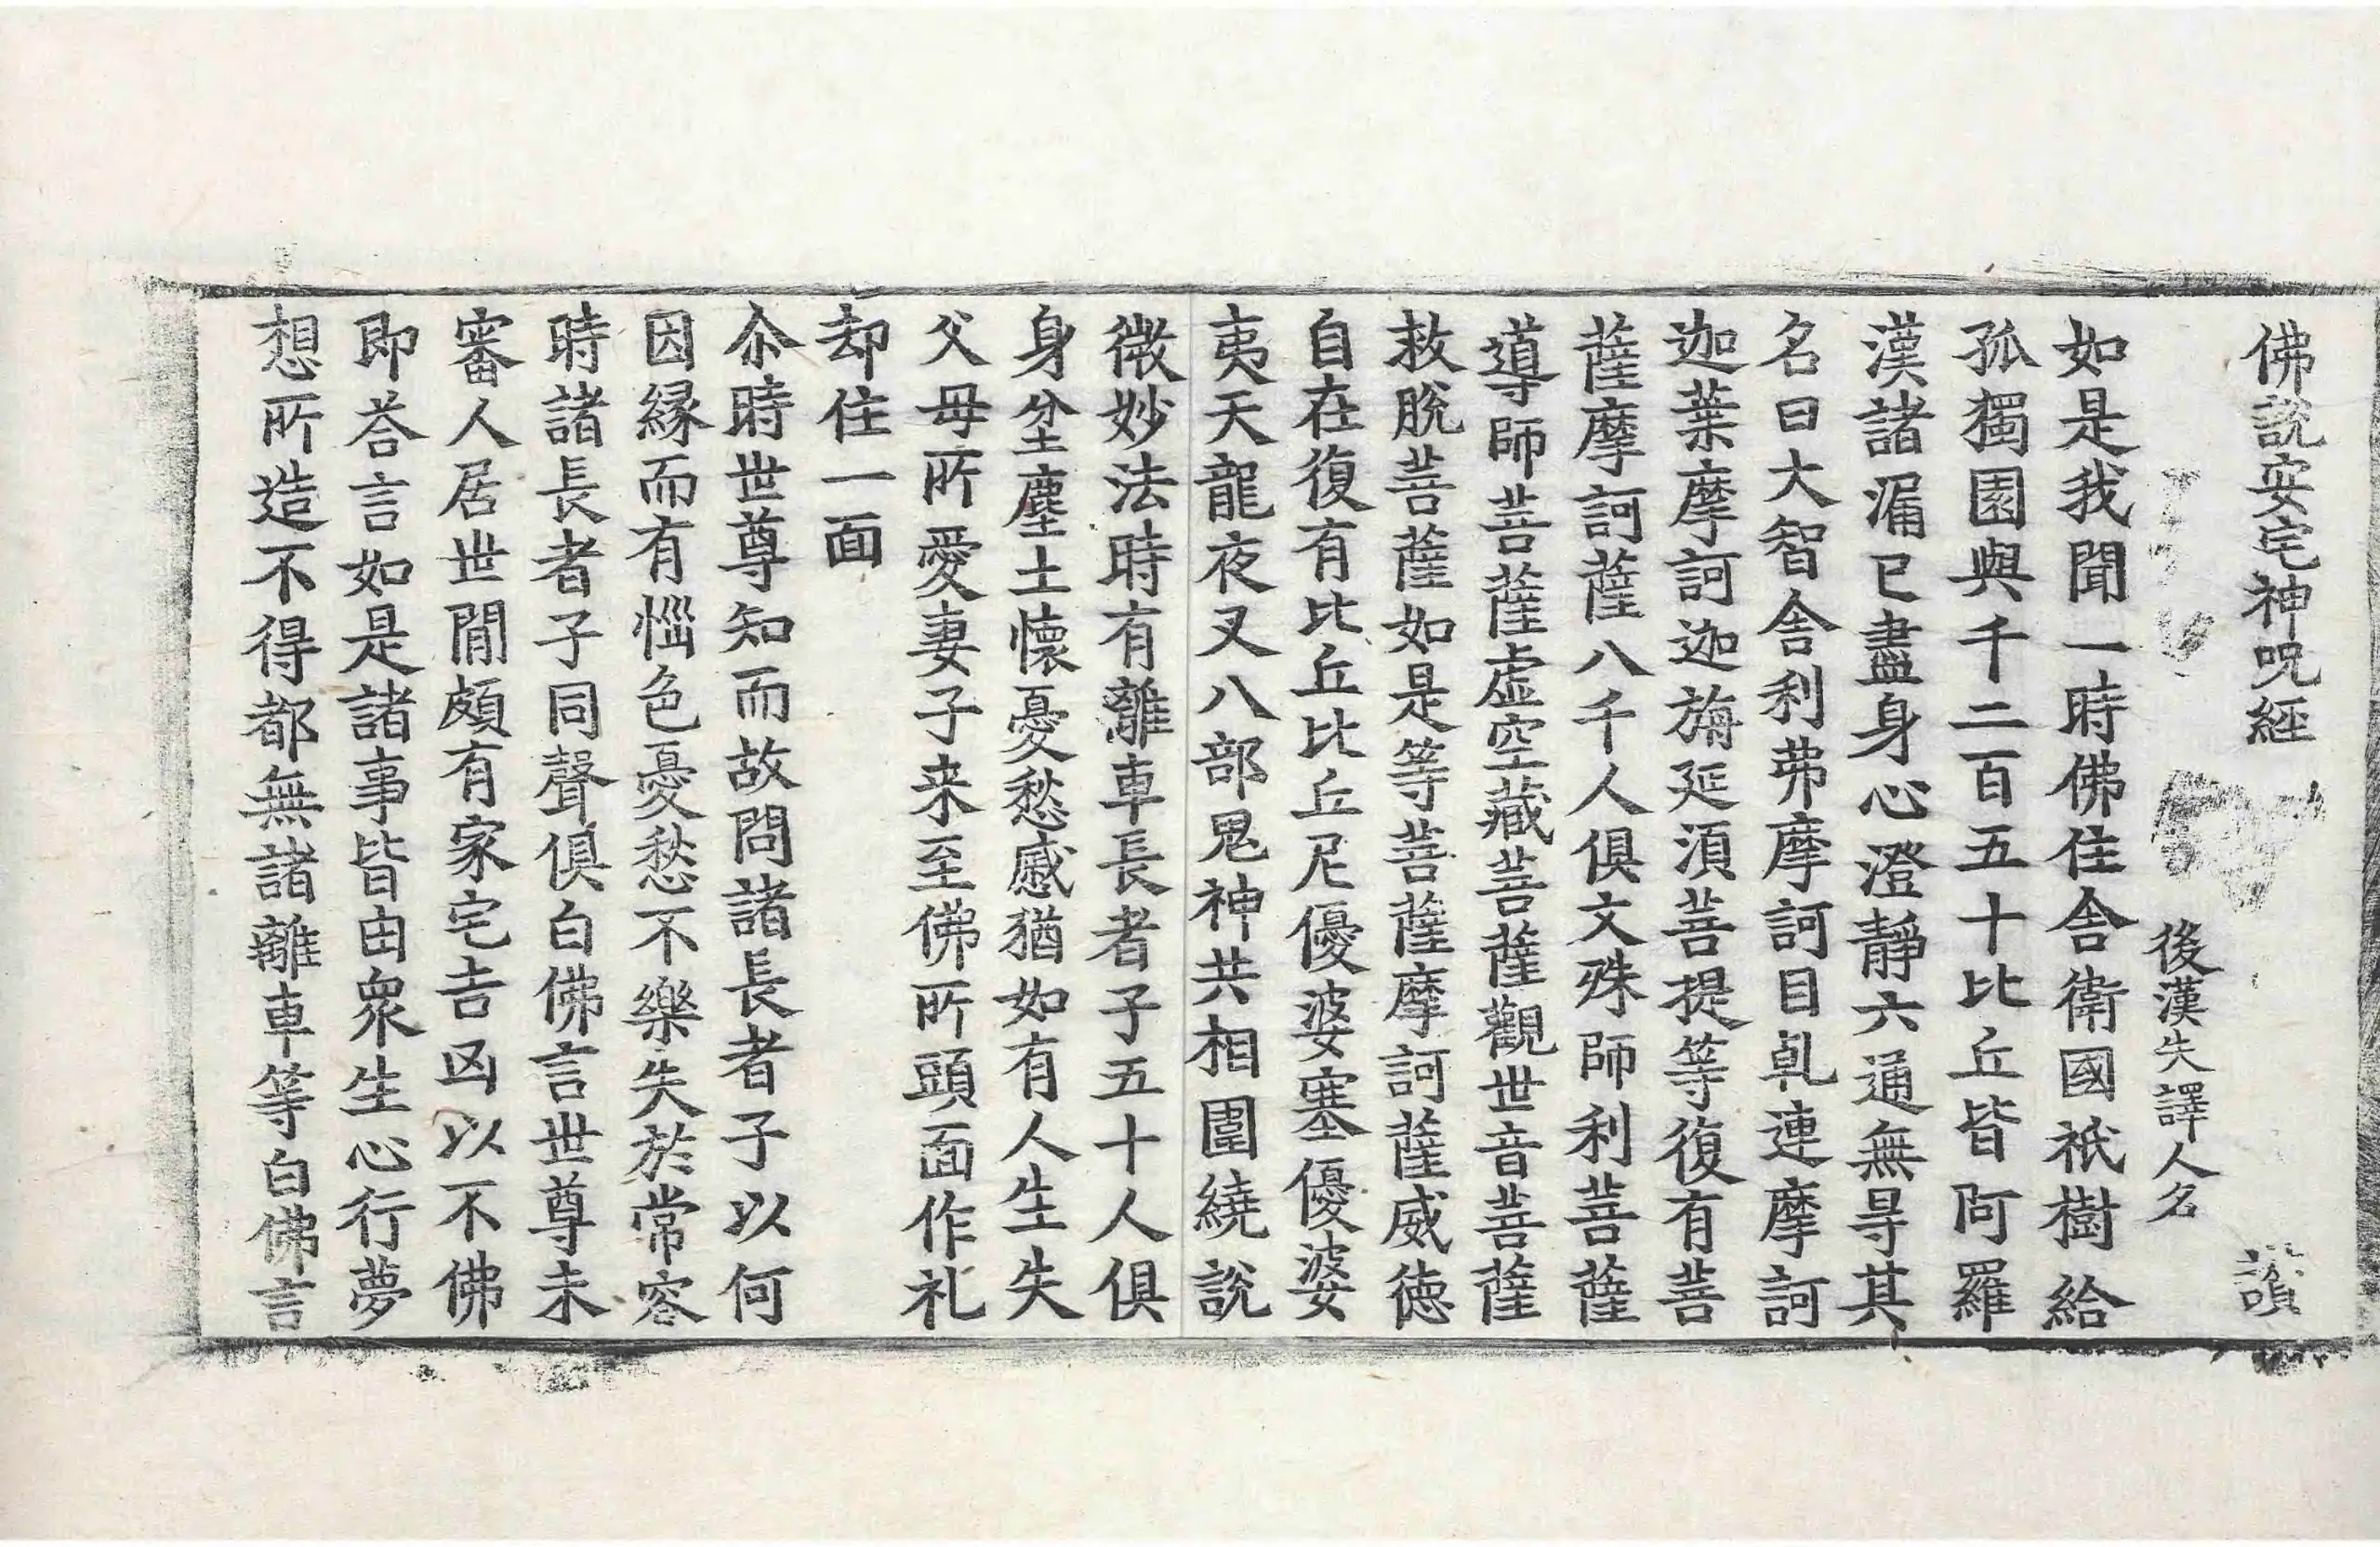 佛說安宅神呪經 讃
後漢失譯人名
如是我聞一時佛住舍衛國祇樹給
孤獨園與千二百五十比丘皆阿羅
漢諸漏已盡身心澄靜六通無㝵其
名曰大智舍利弗摩訶目乹連摩訶
迦葉摩訶迦旃延須菩提等復有菩
薩摩訶薩八千人俱文殊師利菩薩
導師菩薩虛空藏菩薩觀世音菩薩
救脫菩薩如是等菩薩摩訶薩威德
自在復有比丘比丘尼優婆塞優婆
夷天龍夜叉八部鬼神共相圍繞說
微妙法時有離車長者子五十人俱
身坌塵土懷憂愁慼猶如有人生失
父母所愛妻子来至佛所頭面作礼
却住一面
尒時世尊知而故問諸長者子以何
因緣而有惱色憂愁不樂失於常容
時諸長者子同聲俱白佛言世尊未
審人居世間頗有家宅吉凶以不佛
即荅言如是諸事皆由衆生心行夢
想所造不得都無諸離車等白佛言